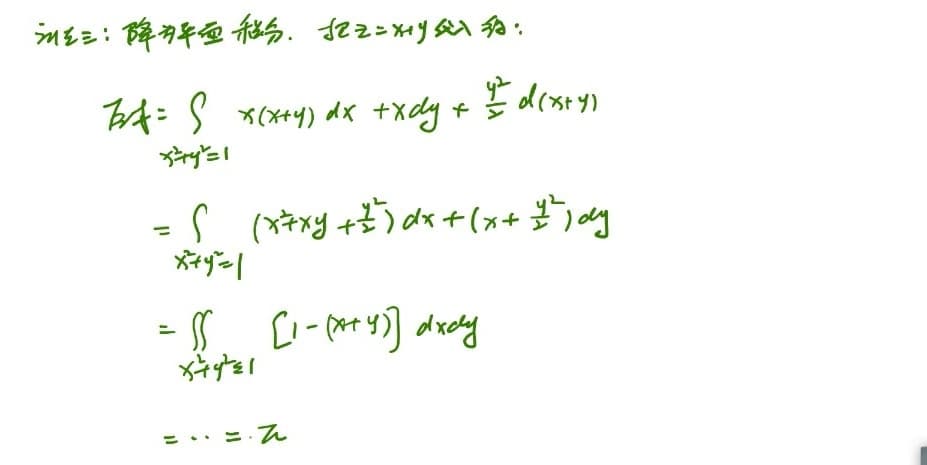 法三：降为平面积分. 把z=x+y代入得：
原式=∫ x(x+y) dx + xdy + y²/2 d(x+y)
x²+y²=1
=∫ (x²+xy+y²/2) dx + (x+y²/2) dy
x²+y²=1
=∬ [1-(x+y)] dxdy
x²+y²≤1
=...=π